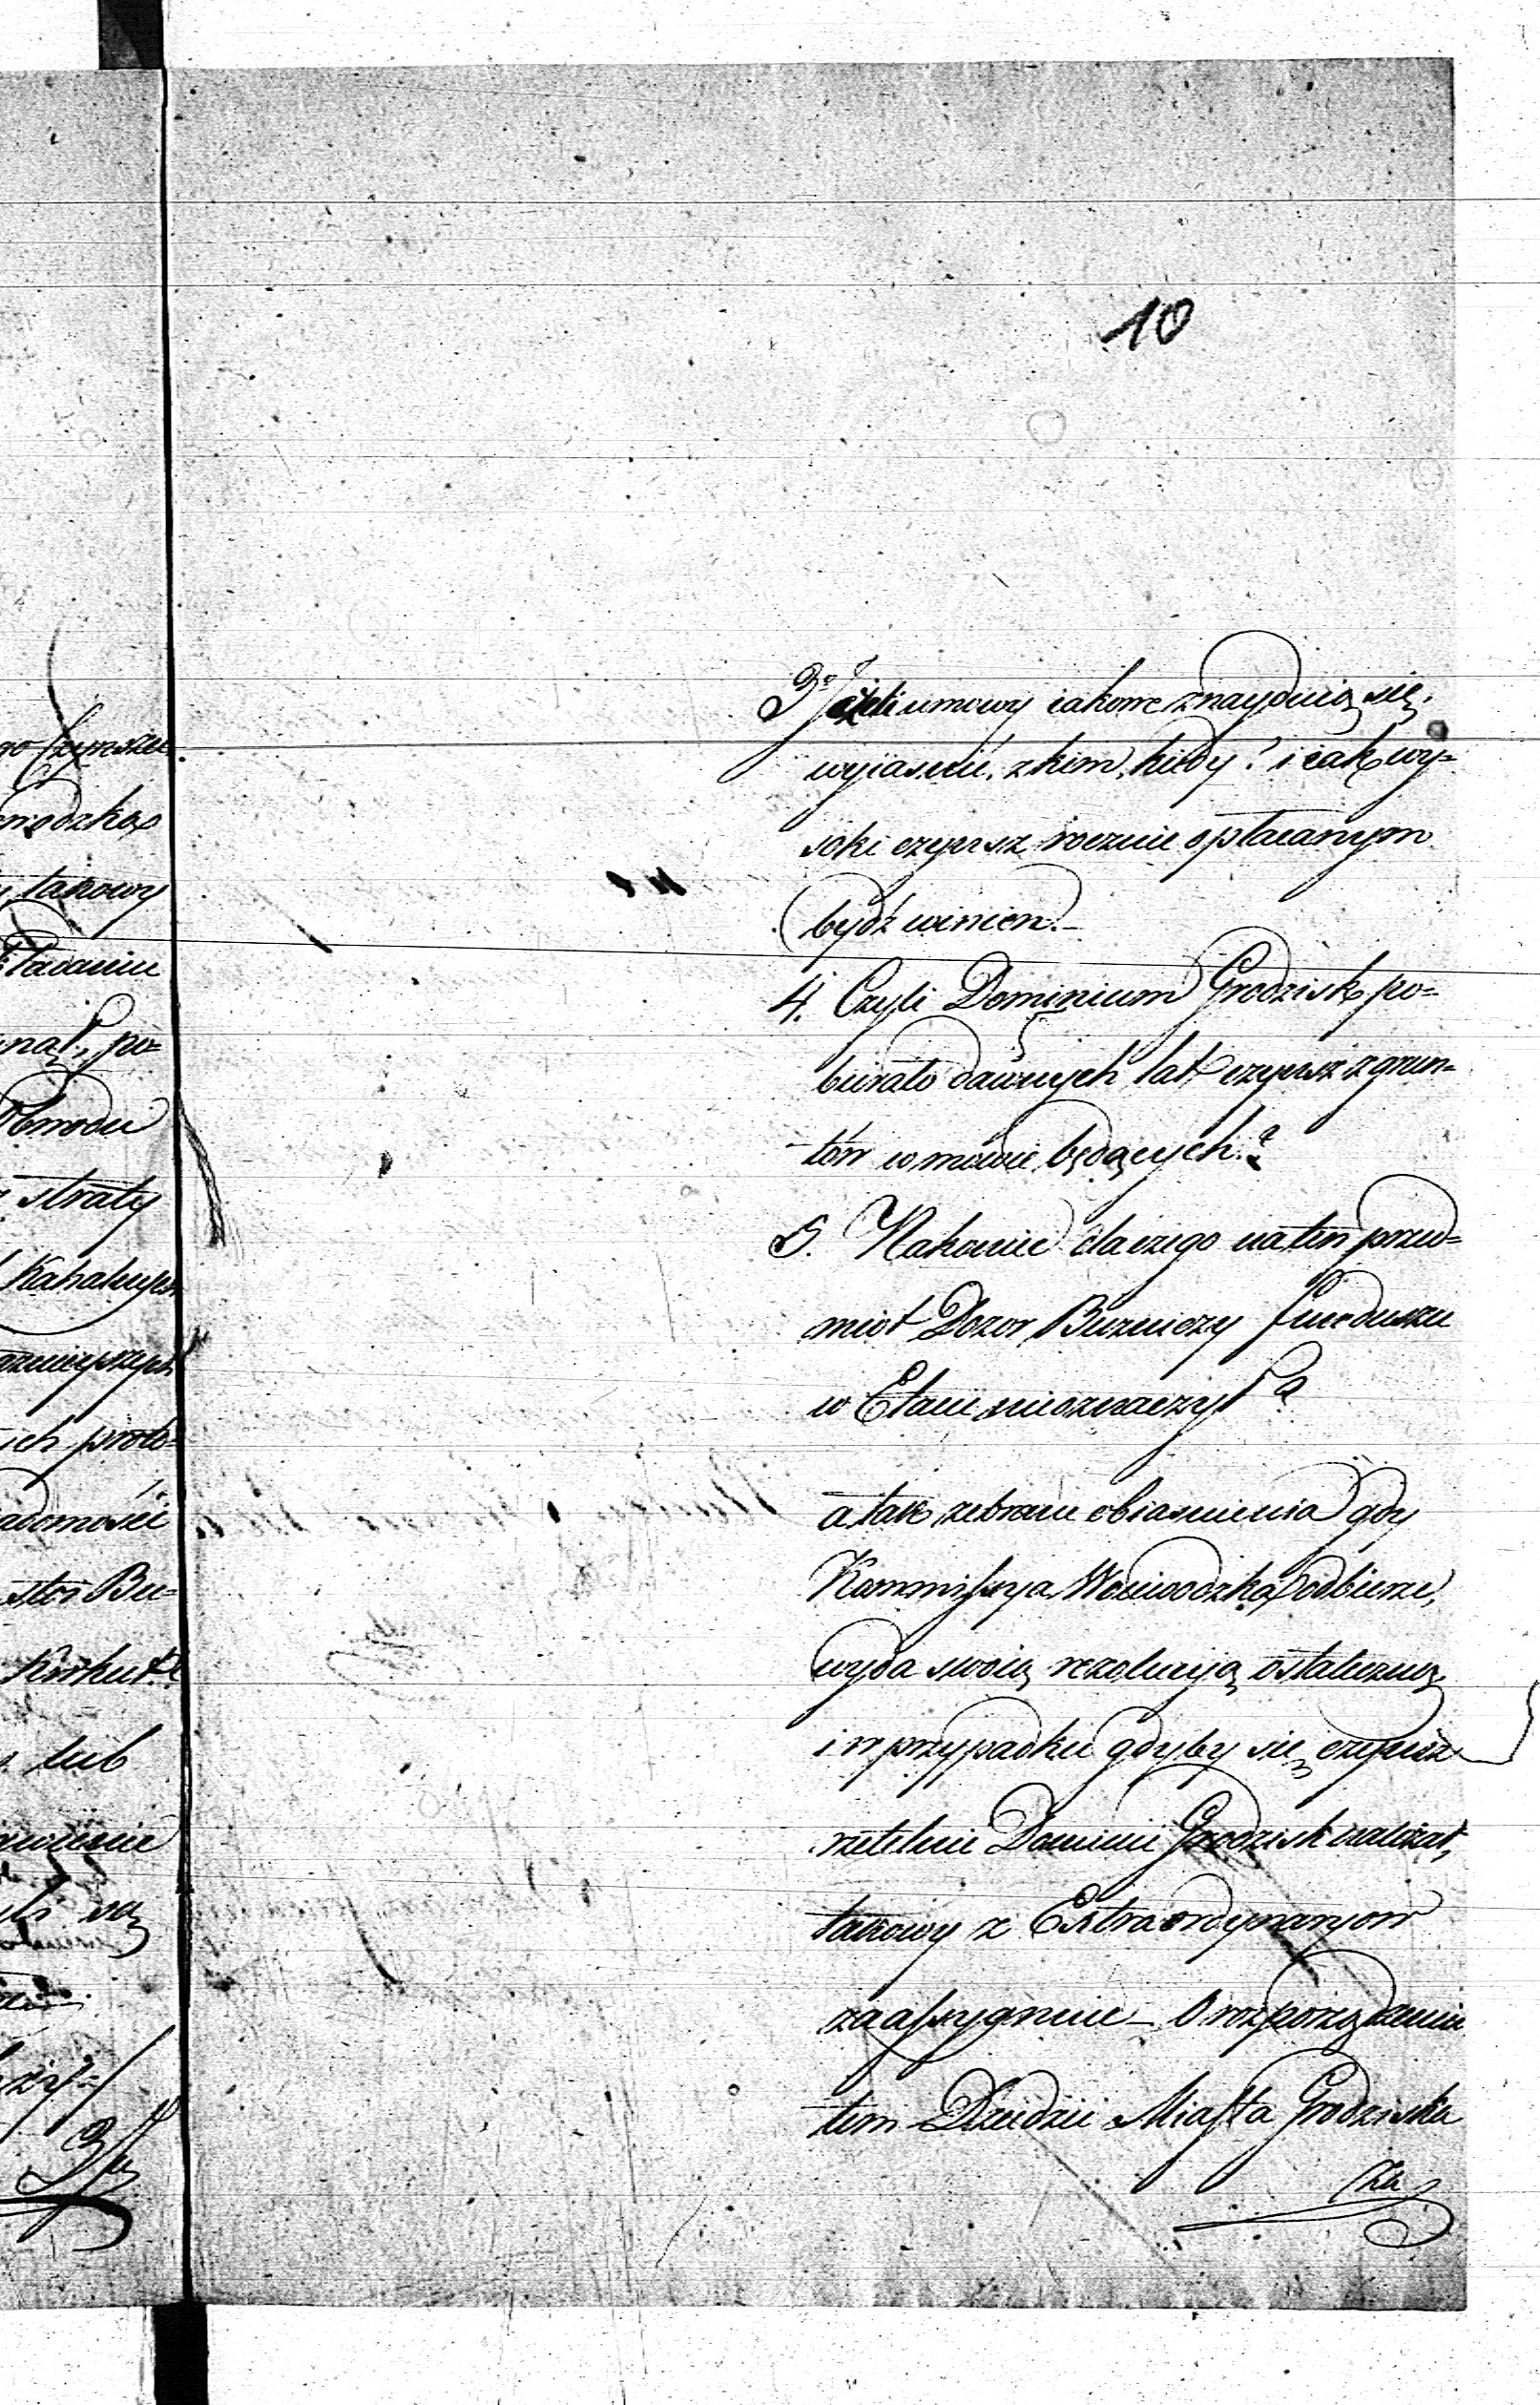 10
3º Jeżeli umowy iakowe znayduią się,
wyiaśnić, z kim, kiedy? i iak wy=
soki czynsz rocznie opłacanym
bydź winien.–
4. Czyli Dominium Grodzisk po=
bierało dawnych lat czynsz z grun=
tów w mowie będących?
5. Nakoniec dlaczego na ten przed=
miot Dozor Bużniczy funduszu
w Etacie nieoznaczył?
a tak zebrane obiasnienia gdy
Kommissya Woiewodzka odbierze,
wyda swoią rezolucyą ostateczną
i w przypadku gdyby się czynsz
rzetelnie Dominii Grodzisk należał,
takowy z Extraordynaryow
zaassygnuie – O rozporządzeniu
tem Dziedzic Miasta Grodziska
go Czynszu
wodzka
takowy
po=
straty
Kahalnych
adomości
Bu=
lub
są